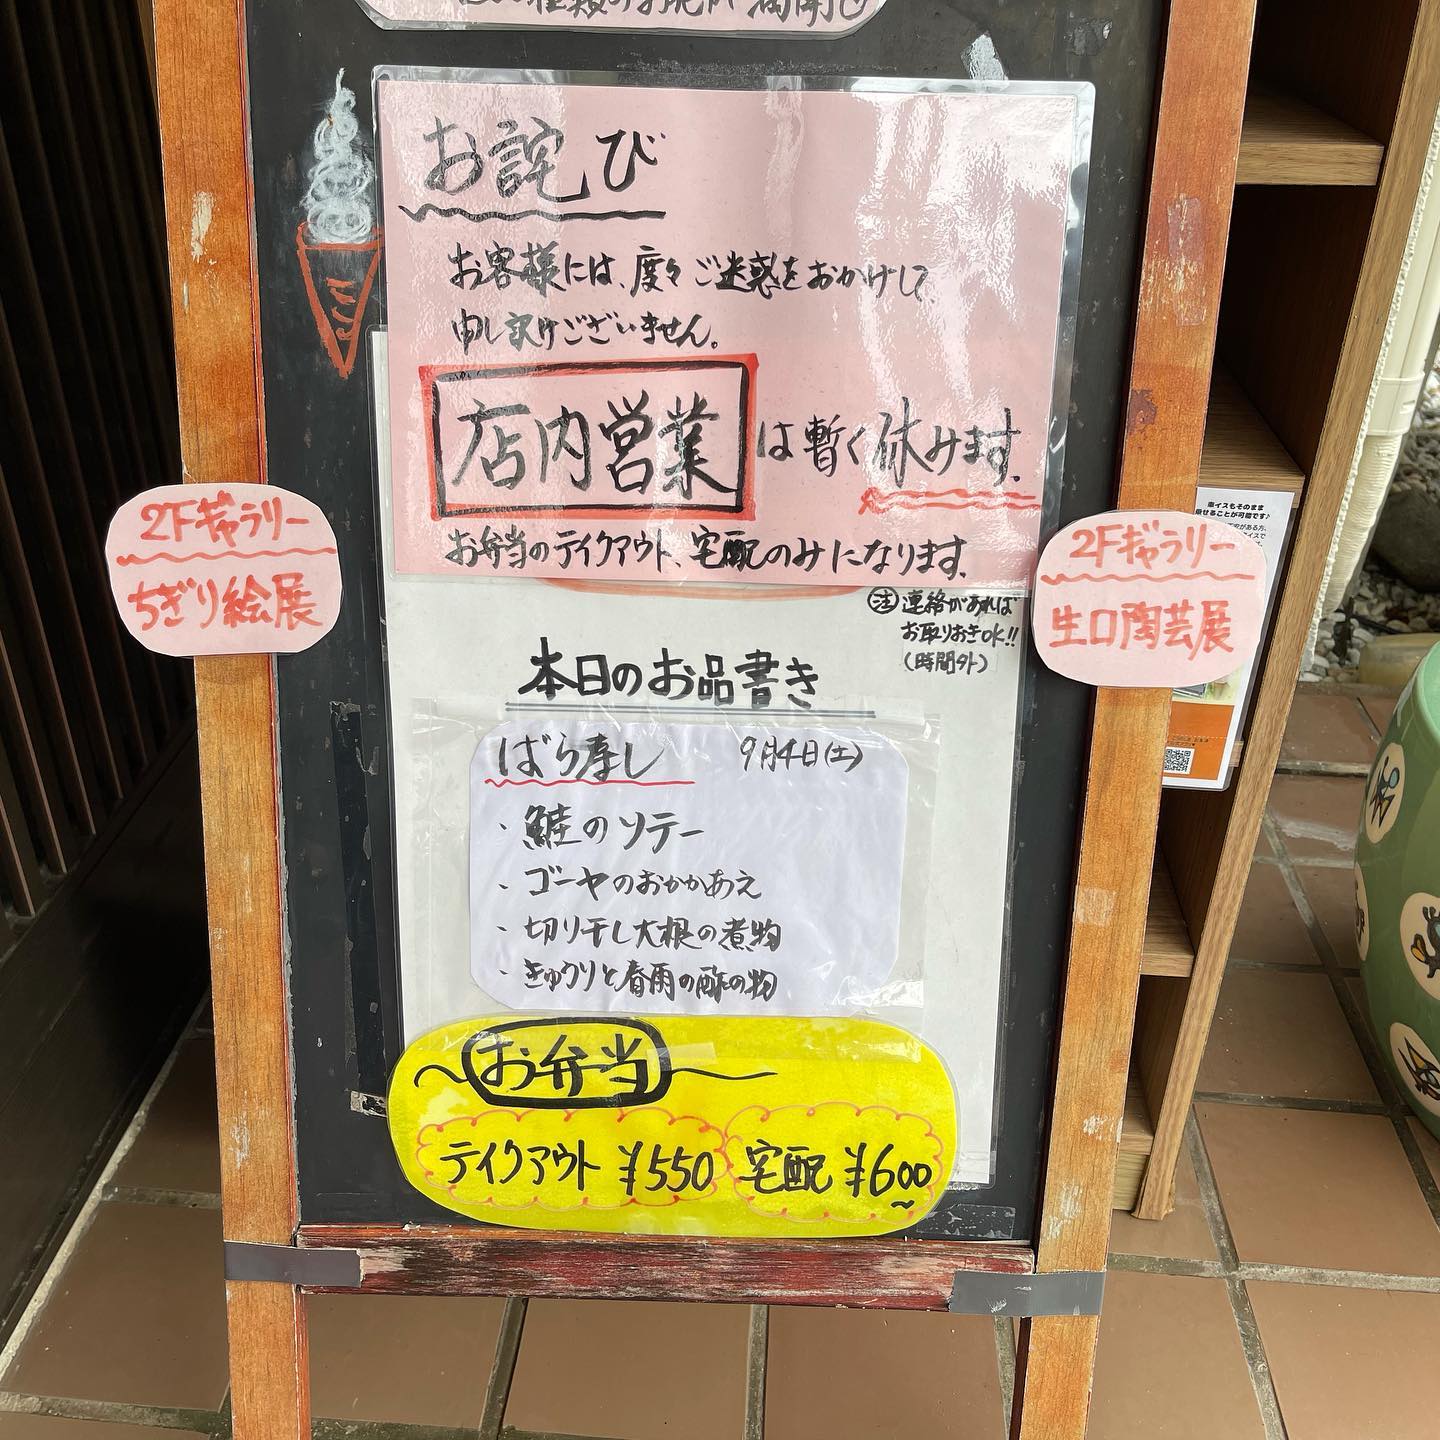 お詫び
お客様には、度々ご迷惑をおかけして、
申し訳けございません。
店内営業は暫く休みます。
お弁当のテイクアウト、宅配のみになります。
注 連絡があれば
お取りおきOK!!
(時間外)
2Fギャラリー
ちぎり絵展
2Fギャラリー
生口陶芸展
本日のお品書き
ばら寿し 9月4日(土)
・鮭のソテー
・ゴーヤのおかかあえ
・切り干し大根の煮物
・きゅうりと春雨の酢の物
お弁当
テイクアウト ¥550
宅配 ¥600~
車イスもそのまま
乗せることが可能です♪